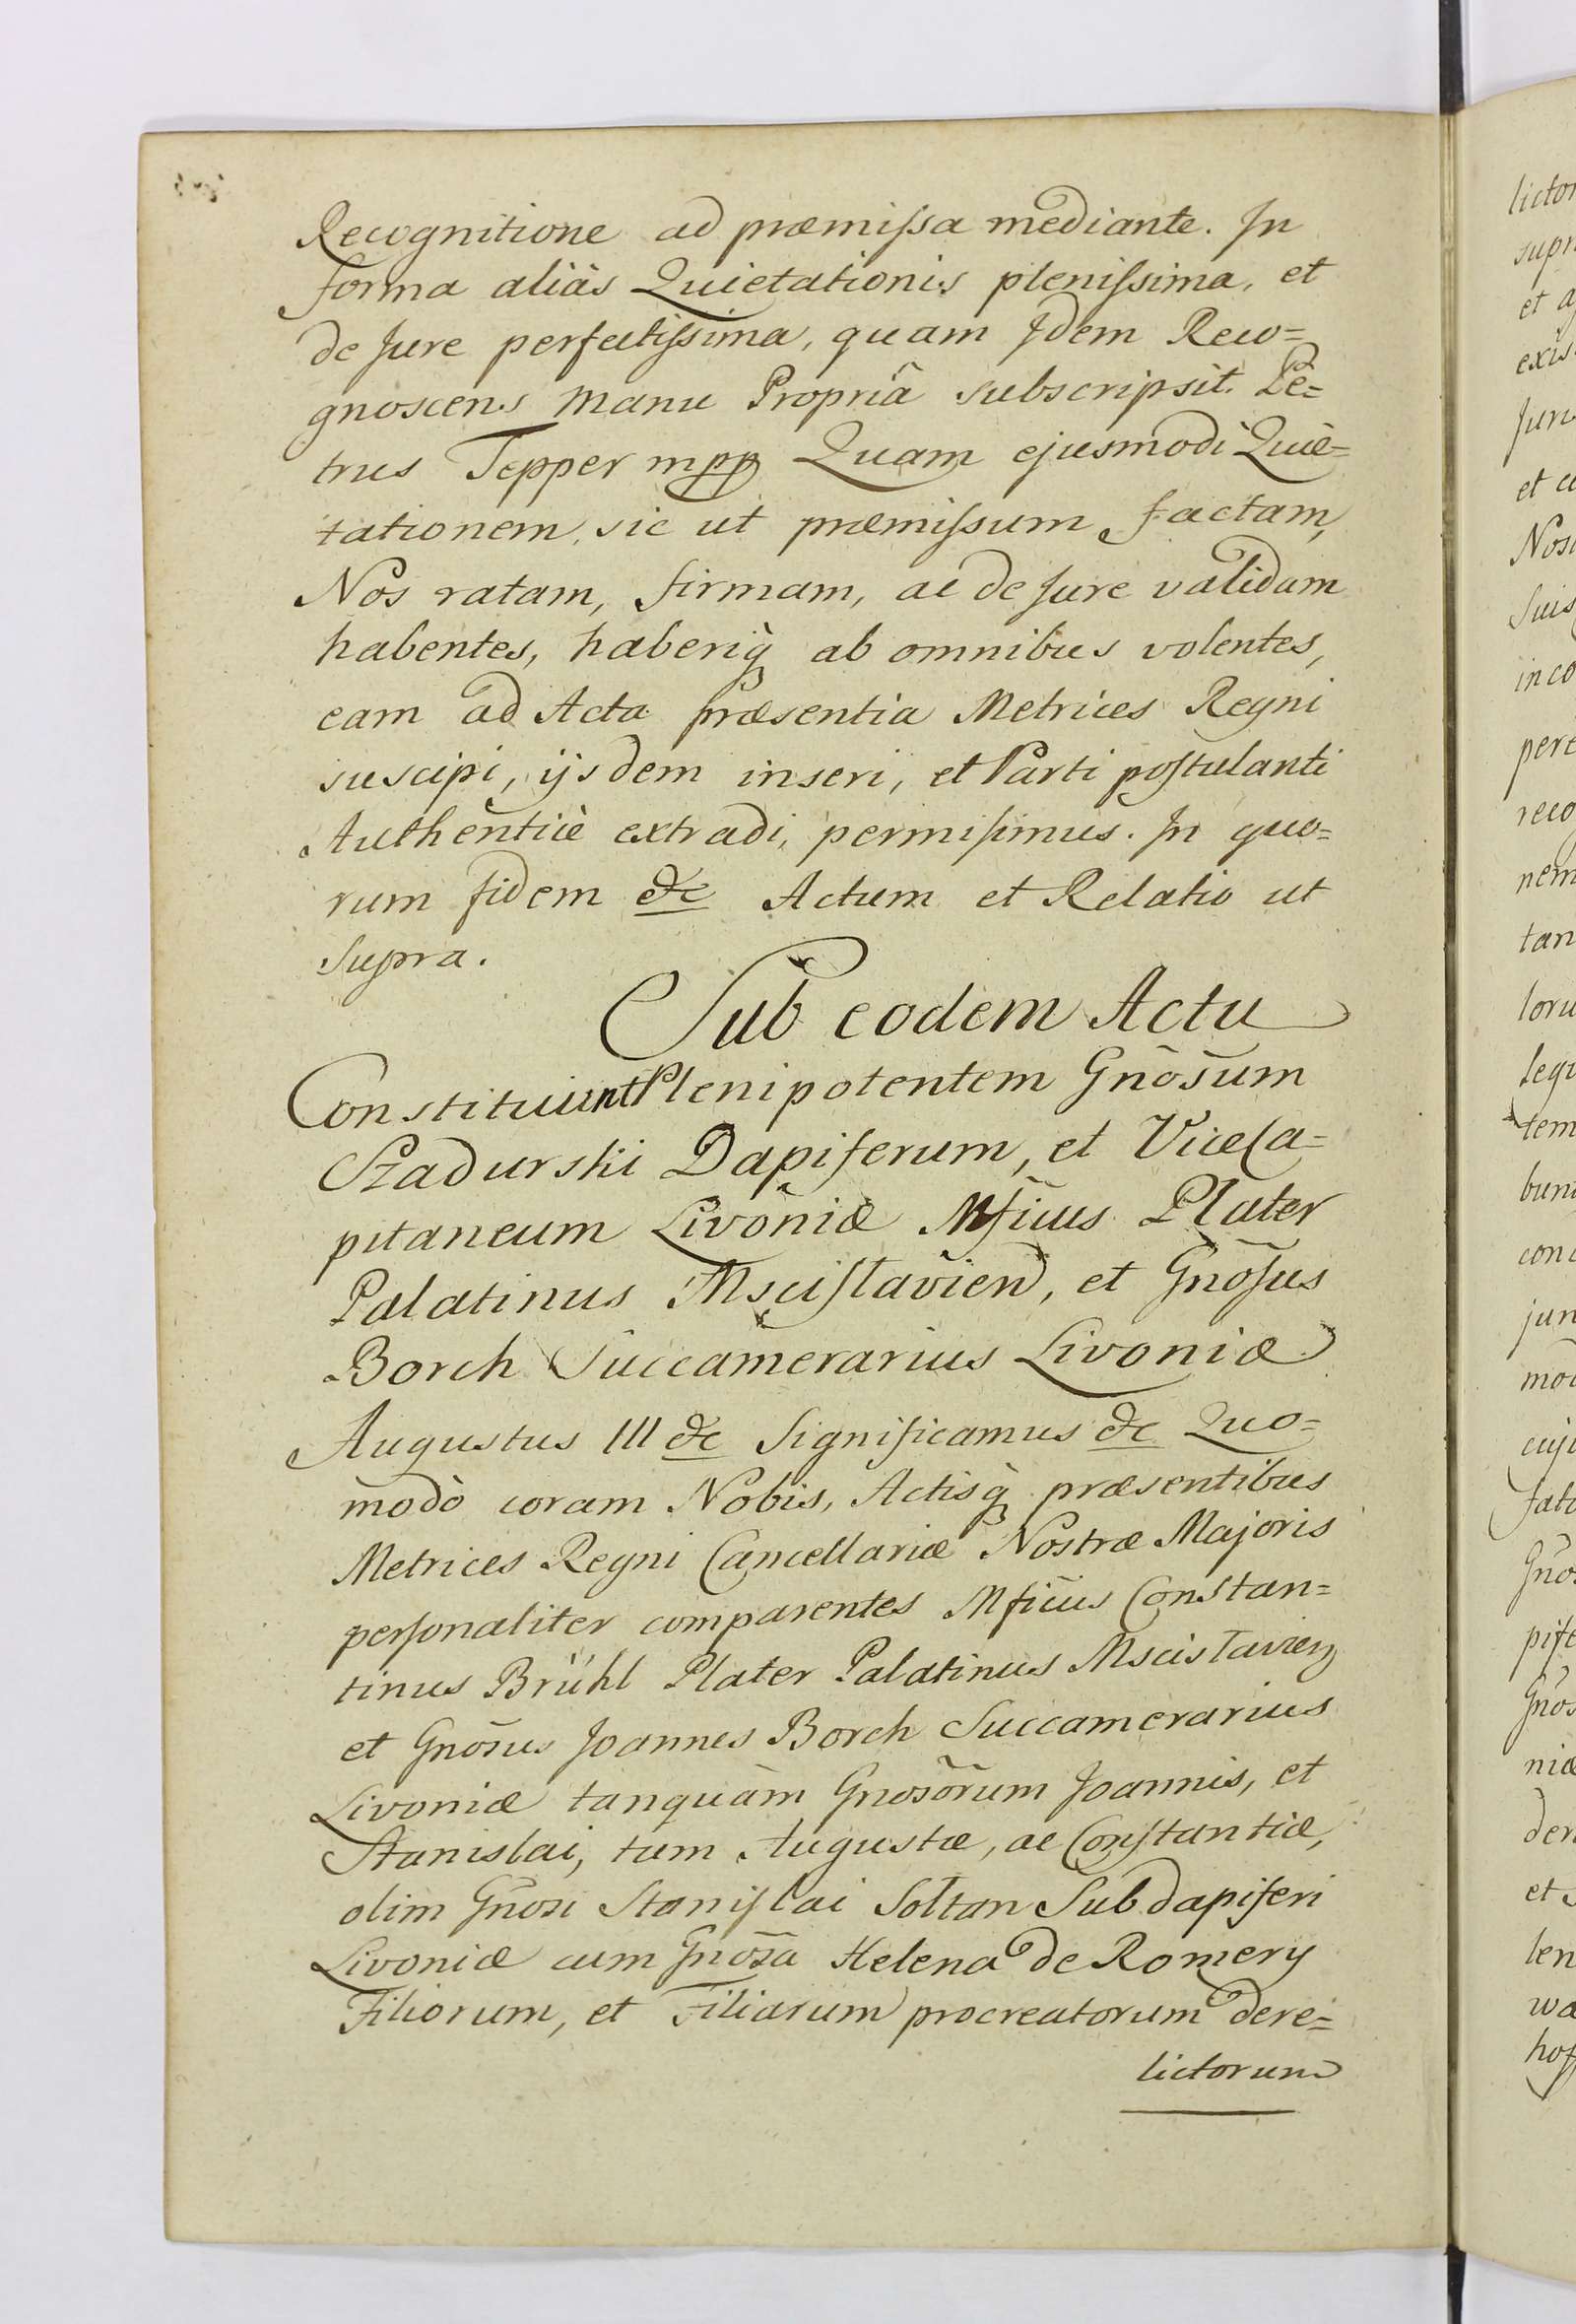 Recognitione ad præmissa mediante. In
forma aliàs Quietationis plenissima, et
de Jure perfectissima, quam Idem Reco=
gnoscens Manu Propriâ subscripsit. Pe=
trus Tepper mpp Quam ejusmodi Quie=
tationem, sic ut præmissum factam,
Nos ratam, firmam, ac de Jure validam
habentes, haberiq̀ ab omnibus volentes,
eam ad Acta præsentia Metrices Regni
suscipi, ijsdem inseri, et Parti postulanti
Authenticè extradi, permisimus. In quo=
rum fidem &c Actum et Relatio ut
Supra.
Sub eodem Actu
Constituunt Plenipotentem Gnõsum
Szadurski Dapiferum, et ViceCa=
pitaneum Livoniæ Mficus Plater
Palatinus Mscislavien, et Gnõsus
Borch Succamerarius Livoniæ
Augustus III &c Significamus &c Quo=
modò coram Nobis, Actisq̀ præsentibus
Metrices Regni Cancellariæ Nostræ Majoris
personaliter comparentes Mficus Constan=
tinus Brühl Plater Palatinus Mscislavien
et Gnõsus Joannes Borch Succamerarius
Livoniæ tanquàm Gnosõrum Joannis, et
Stanislai, tum Augustæ, ac Constantiæ,
olim Gnõsi Stanislai Sołtan Subdapiferi
Livoniæ cum Gnõsa Helena de Romery
Filiorum, et Filiarum procreatorum dere=
lictorum
lictor
supr
et a
exis
Juri
et c
Nos
Suis
inco
pere
reco
nem
tan
loru
legi
tem
bun
conc
jun
mod
cuj
fat
Gnõs
pife
Gnõs
niæ
der
et S
len
wa
hof